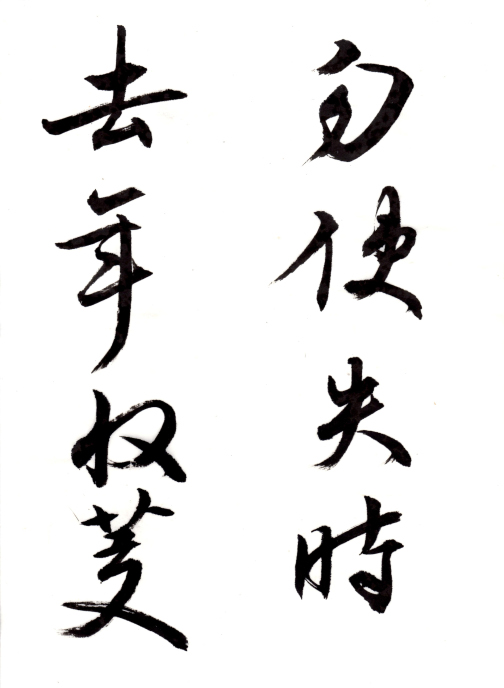 勿使失時
去年収麥